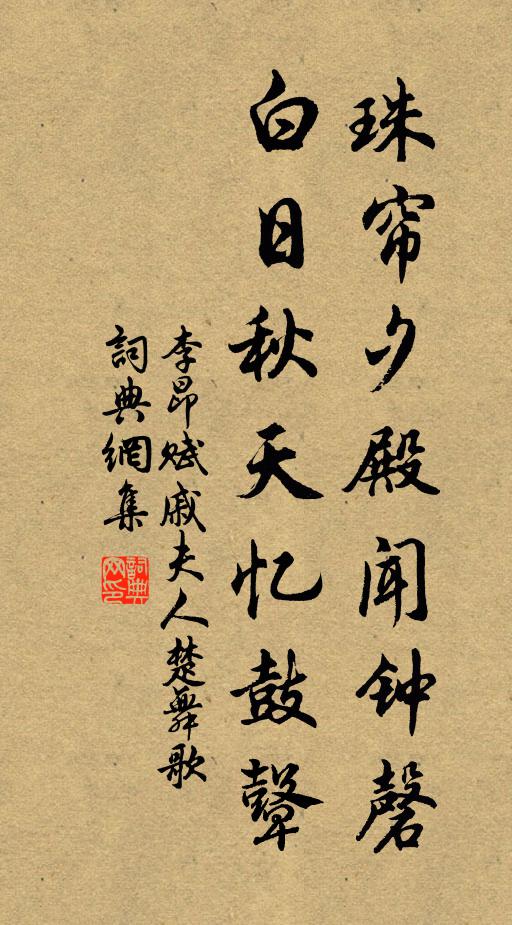 珠帘夕殿闻钟磬
白日秋天忆鼓鼙
李昂赋戚夫人楚舞歌
詞典網集
詞典
网印